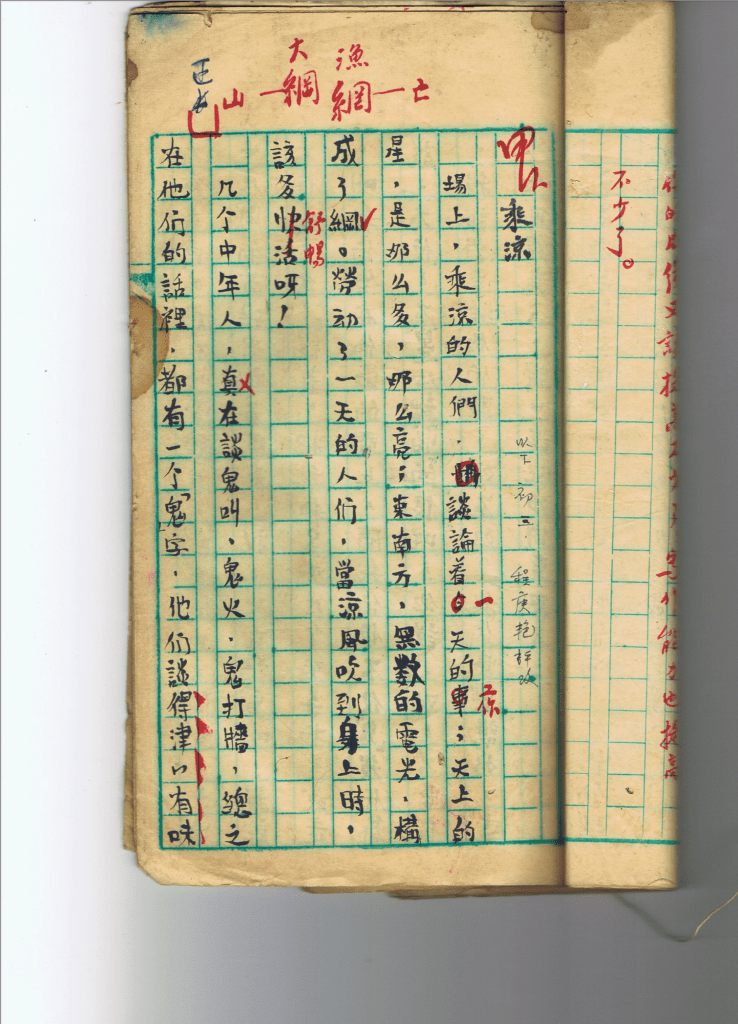 不少了。
乘凉
以下初三．
場上，乘凉的人們．談論着白天的事；天上的
一
活
星，是那么多，那么亮；東南方，無數的電光．橫
成了綱。勞动了一天的人们，當凉風吹到身上時，
該多快活呀！
舒暢
几个中年人，真在談鬼叫、鬼火．鬼打牆，總之
在他们的話裡．都有一个「鬼」字．他们談得津〃有味
漁網—亡
大綱—山
正